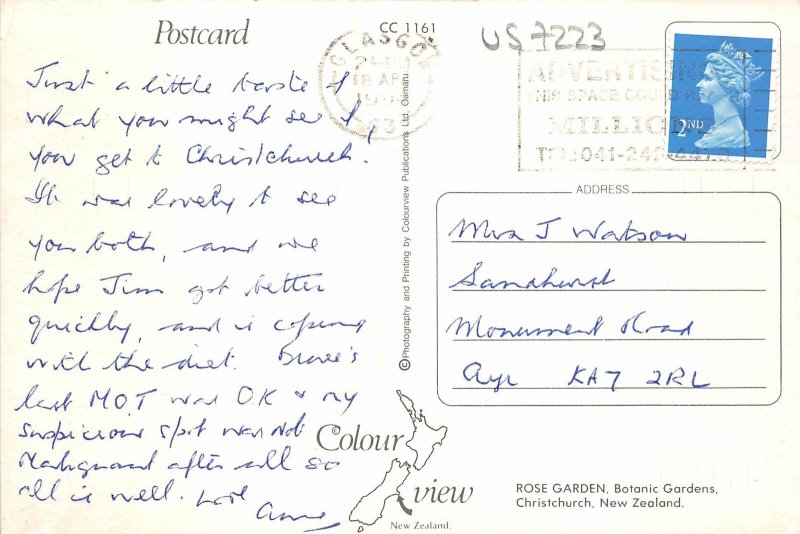 Postcard
CC 1161
US 7223
GLASGOW
18 AP
ADVERTISING
THIS SPACE COULD REACH
MILLIONS
TEL: 041-24
2ND
Just a little taste of
what you might see if
you get to Christchurch.
It was lovely to see
you both, and we
hope Jim got better
quickly, and is coping
with the diet.
last MOT was OK & my
suspicious spot was not
Malignant after all so
all is well. Love
Anne
© Photography and Printing by Colourview Publications Ltd. Oamaru
ADDRESS
Mrs J Watson
Sandhurst
Monument Road
Ayr KA7 2RL
Colour
view
New Zealand.
ROSE GARDEN, Botanic Gardens,
Christchurch, New Zealand.